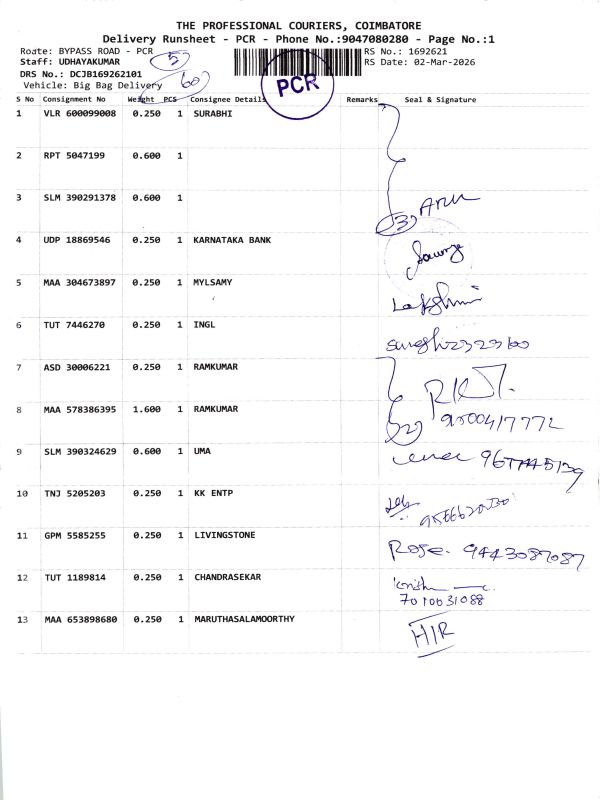 THE PROFESSIONAL COURIERS, COIMBATORE
Delivery Runsheet - PCR - Phone No.:9047080280 - Page No.:1
Route: BYPASS ROAD - PCR
RS No.: 1692621
Staff: UDHAYAKUMAR
5
RS Date: 02-Mar-2026
DRS No.: DCJB169262101
PCR
Vehicle: Big Bag Delivery
60
S No Consignment No Weight PCS Consignee Details Remarks Seal & Signature
1 VLR 600099008 0.250 1 SURABHI
2 RPT 5047199 0.600 1
3 SLM 390291378 0.600 1
3 Anu
4 UDP 18869546 0.250 1 KARNATAKA BANK
5 MAA 304673897 0.250 1 MYLSAMY
Lakshmi
6 TUT 7446270 0.250 1 INGL
7 ASD 30006221 0.250 1 RAMKUMAR
8 MAA 578386395 1.600 1 RAMKUMAR
2 9500417772
9 SLM 390324629 0.600 1 UMA
10 TNJ 5205203 0.250 1 KK ENTP
11 GPM 5585255 0.250 1 LIVINGSTONE
Rose. 9443087087
12 TUT 1189814 0.250 1 CHANDRASEKAR
7010031088
13 MAA 653898680 0.250 1 MARUTHASALAMOORTHY
H/R